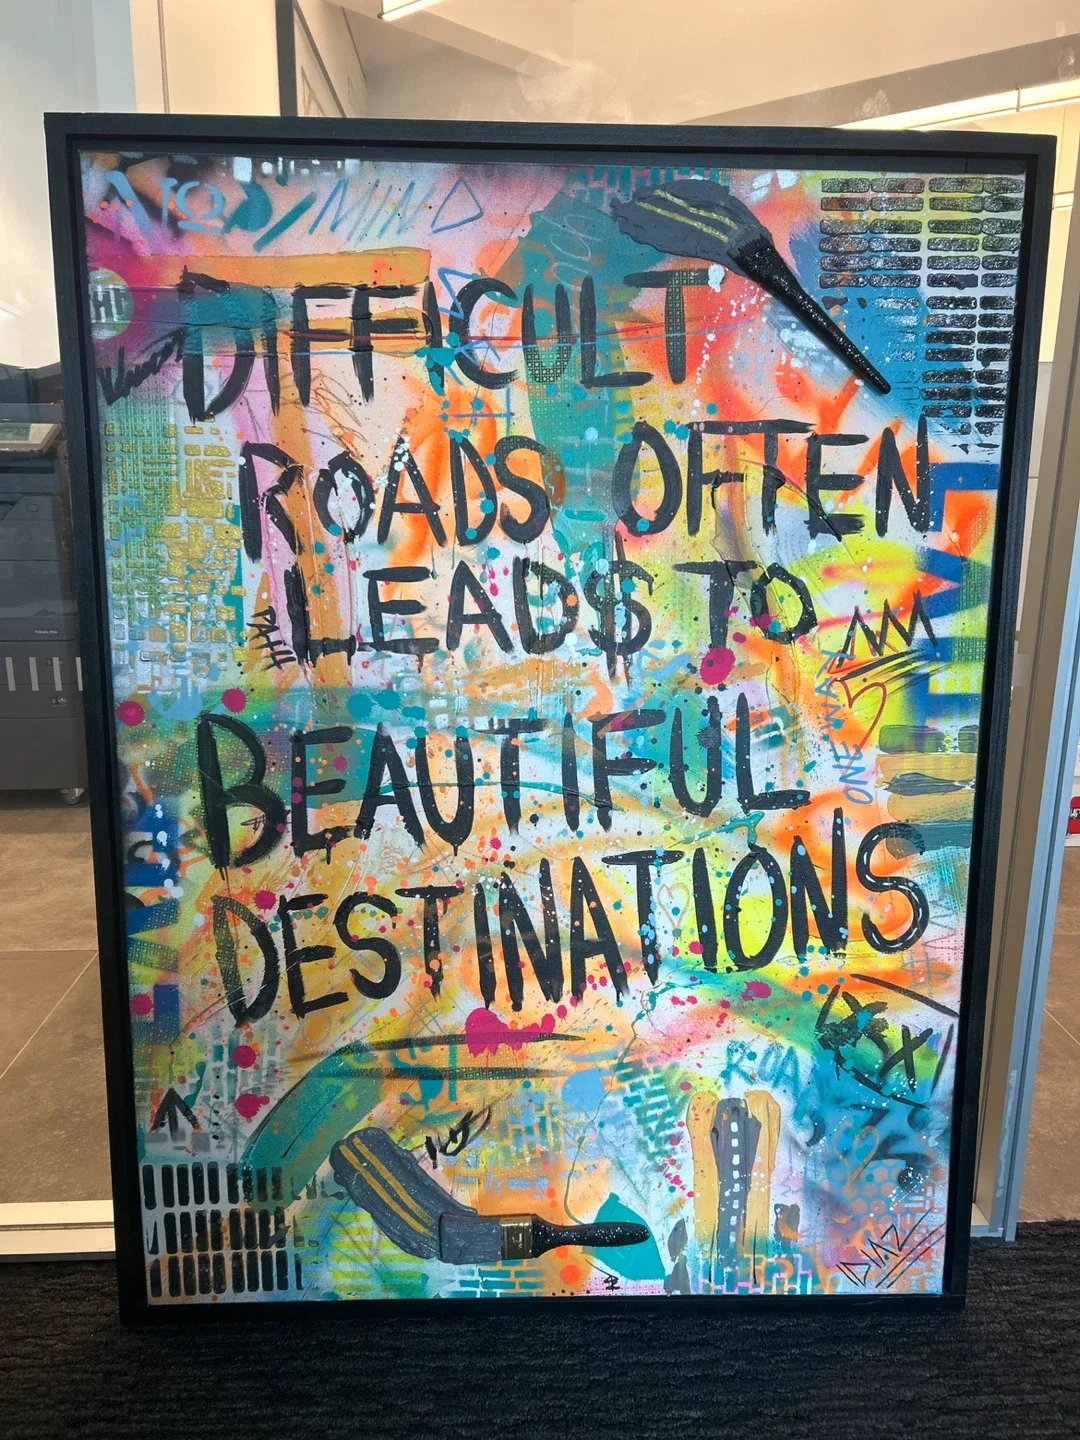 MIND
DIFFICULT
ROADS OFTEN
LEAD$ TO
ONE WAY
BEAUTIFUL
DESTINATIONS
ROAD
X
DIAZ